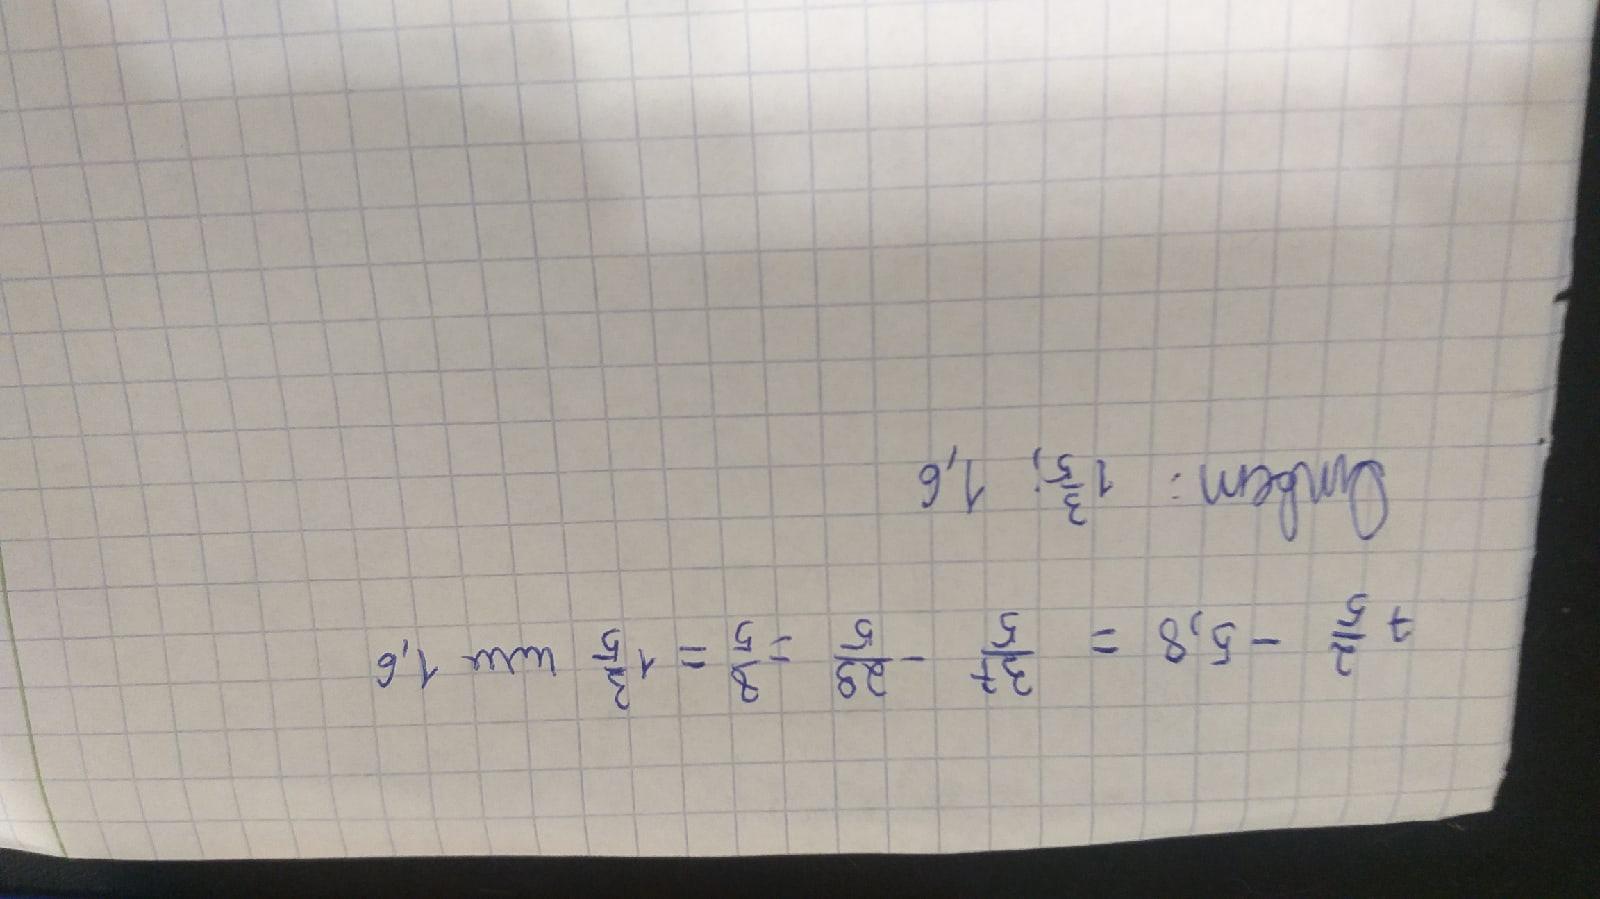 7 2/5 - 5,8 = 37/5 - 29/5 = 8/5 = 1 3/5 или 1,6
Ответ: 1 3/5; 1,6